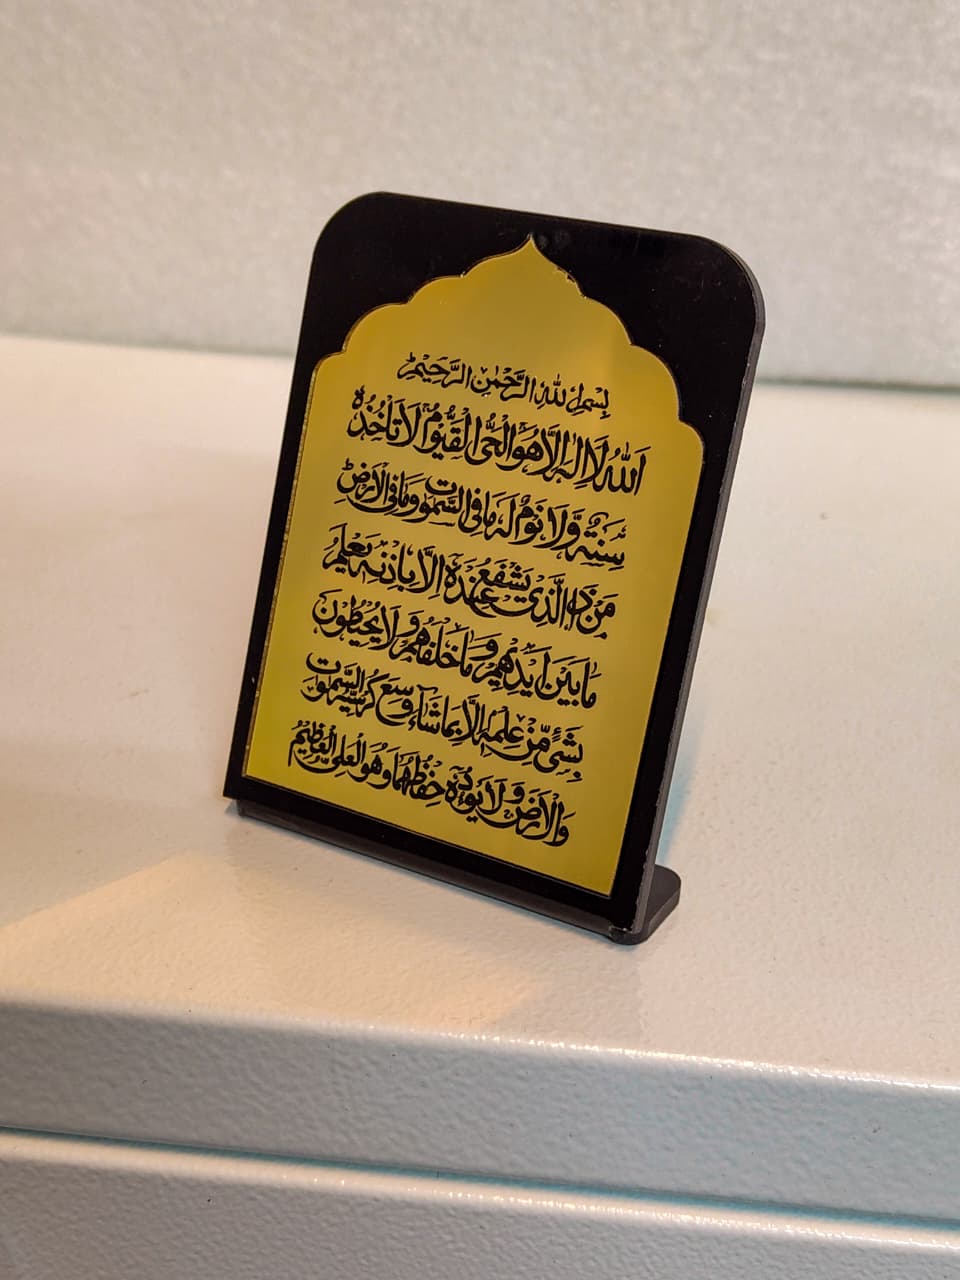 بِسْمِ اللهِ الرَّحْمٰنِ الرَّحِيْمِ
اَللهُ لَا اِلٰهَ اِلَّا هُوَ الْحَيُّ الْقَيُّوْمُ لَا تَاْخُذُهٗ
سِنَةٌ وَّلَا نَوْمٌ لَهٗ مَا فِى السَّمٰوٰتِ وَمَا فِى الْاَرْضِ
مَنْ ذَا الَّذِىْ يَشْفَعُ عِنْدَهٗ اِلَّا بِاِذْنِهٖ يَعْلَمُ
مَا بَيْنَ اَيْدِيْهِمْ وَمَا خَلْفَهُمْ وَلَا يُحِيْطُوْنَ
بِشَىْءٍ مِّنْ عِلْمِهٖ اِلَّا بِمَا شَاءَ وَسِعَ كُرْسِيُّهُ السَّمٰوٰتِ
وَالْاَرْضَ وَلَا يَئُوْدُهٗ حِفْظُهُمَا وَهُوَ الْعَلِىُّ الْعَظِيْمُ